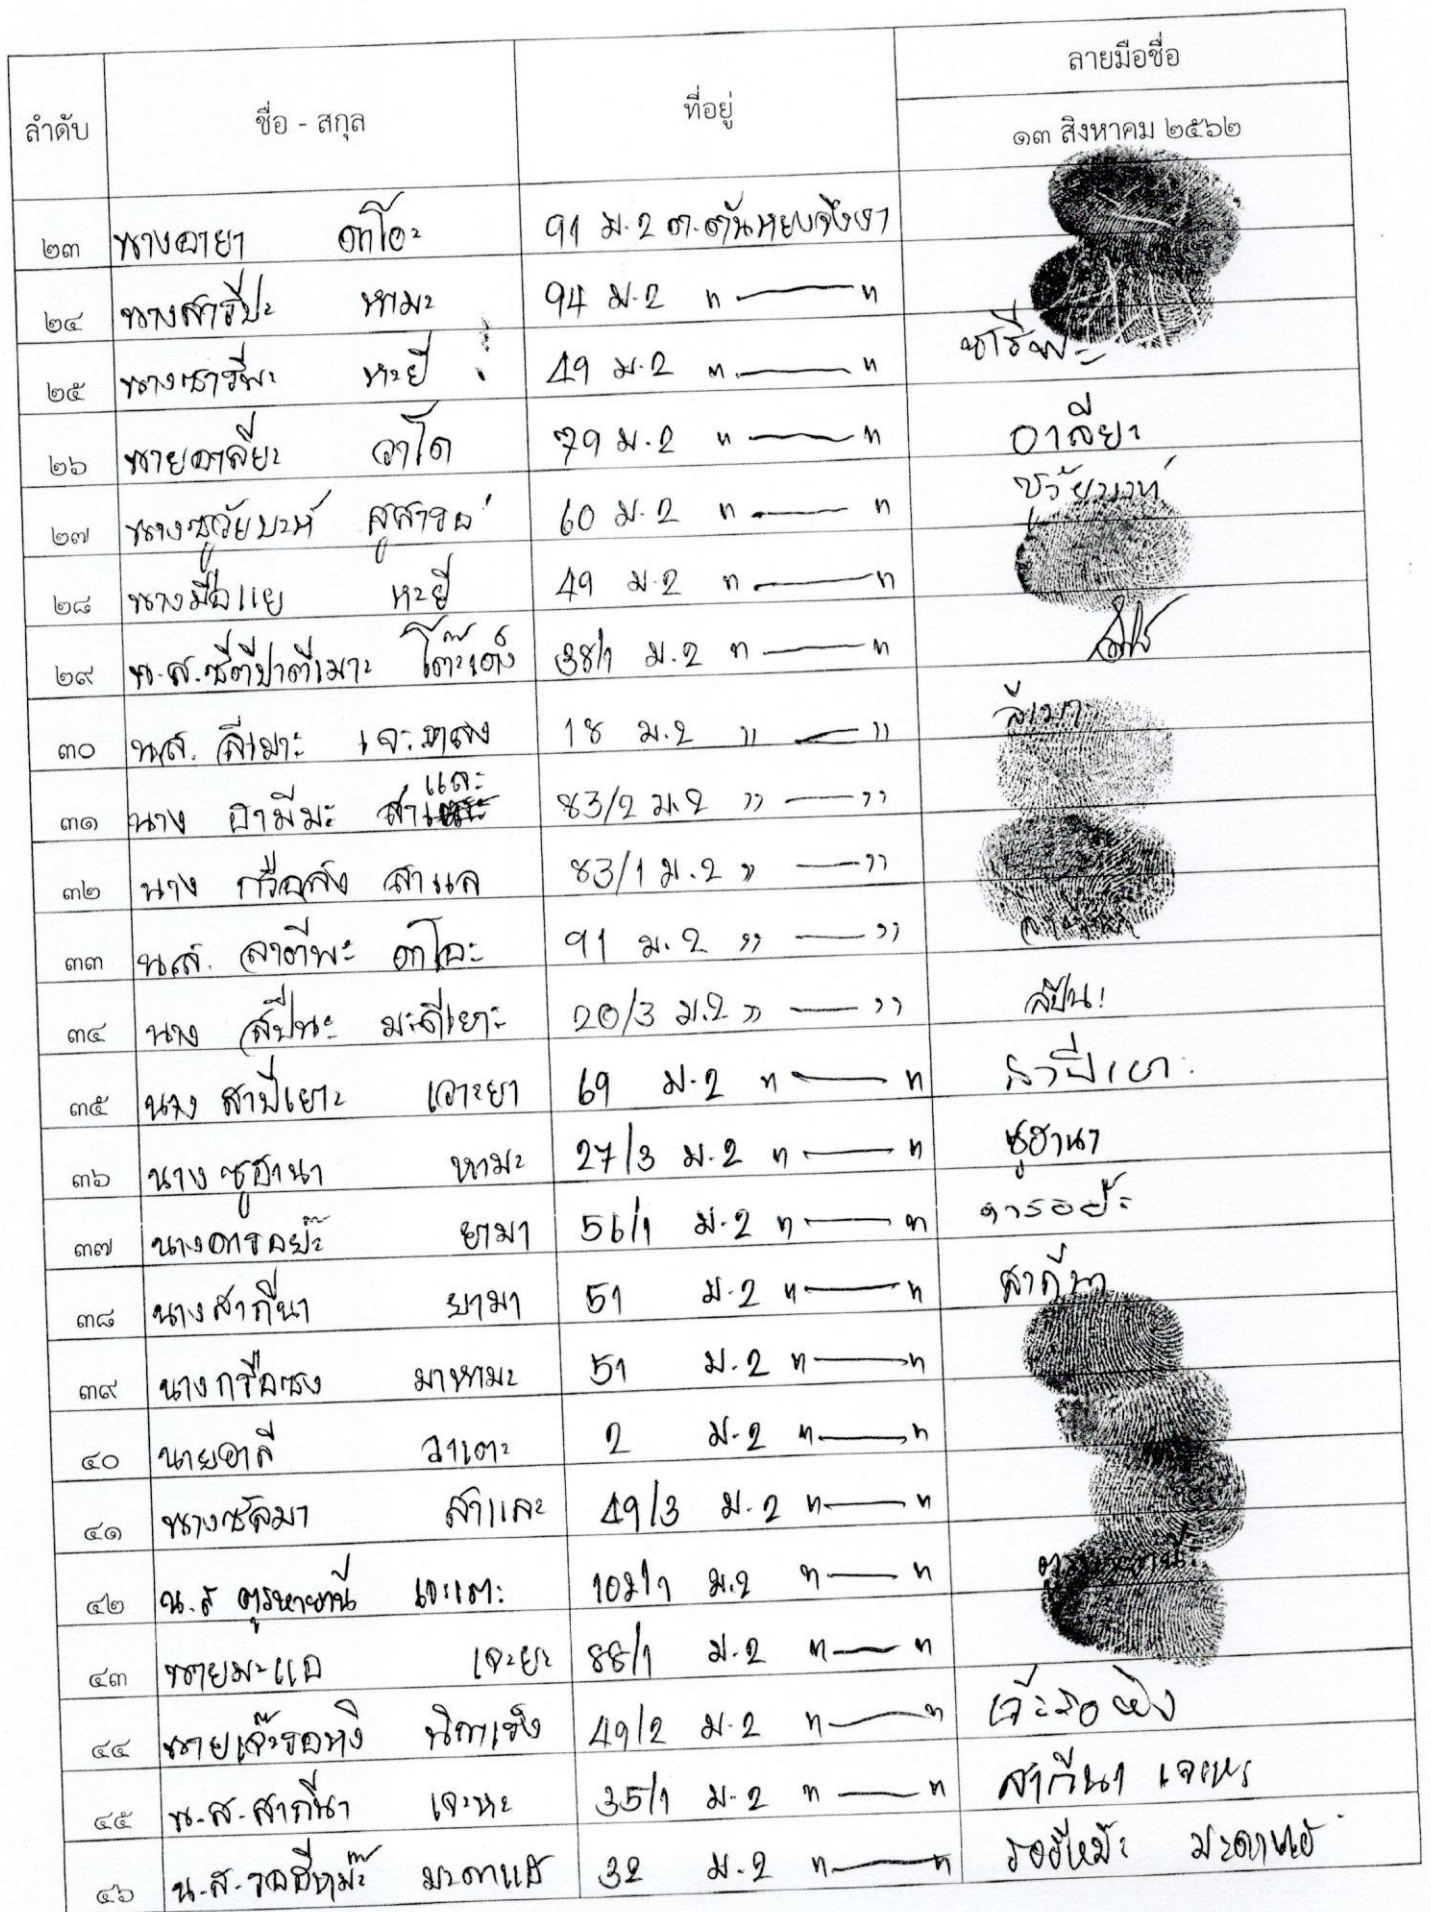 ลำดับ ชื่อ - สกุล ที่อยู่ ลายมือชื่อ
๑๓ สิงหาคม ๒๕๖๒
๒๓ นางอายา ตาโอะ 91 ม.2 ต.ตันหยงจึงงา
๒๔ นางสารีปะ หามะ 94 ม.2 " — "
๒๕ นางซารีพะ หะยี 49 ม.2 " — " ซารีพะ
๒๖ นายอาลียะ วาโด 79 ม.2 " — " อาลียะ
๒๗ 60 ม.2 " — "
๒๘ นางมือแย หะยี 49 ม.2 " — "
๒๙ น.ส.ซีตีปาตีเมาะ 38/1 ม.2 " — "
๓๐ นส. ลีเมาะ 18 ม.2 " — " ลีเมาะ
๓๑ นาง อามีมะ สาและ 83/2 ม.2 " — "
๓๒ นาง กรือสง สาแล 83/1 ม.2 " — "
๓๓ นส. ลาตีพะ ตาโอะ 91 ม.2 " — "
๓๔ นาง สปีนะ มะดีเยาะ 20/3 ม.2 " — " สปีนะ
๓๕ นาง สาปีเยาะ เวาะยา 69 ม.2 " — "
๓๖ นาง ซูฮานา หามะ 27/3 ม.2 " — " ซูฮานา
๓๗ นางดารอย๊ะ ยามา 56/1 ม.2 " — " ดารอย๊ะ
๓๘ นางสากีนา ยามา 51 ม.2 " — " สากีนา
๓๙ นางกรือซง มาหามะ 51 ม.2 " — "
๔๐ นายอาลี วาเตาะ 2 ม.2 " — "
๔๑ นางซัลมา สาและ 49/3 ม.2 " — "
๔๒ น.ส 102/1 ม.2 " — "
๔๓ นายมะแอ เจะยะ 88/1 ม.2 " — "
๔๔ นายเจ๊ะรอหิง 49/2 ม.2 " — " เจ๊ะรอหิง
๔๕ น.ส.สากีนา เจะหะ 35/1 ม.2 " — " สากีนา เจะหะ
๔๖ น.ส.รอฮีหม๊ะ มะดาแฮ 32 ม.2 " — " รอฮีหม๊ะ มะดาแฮ